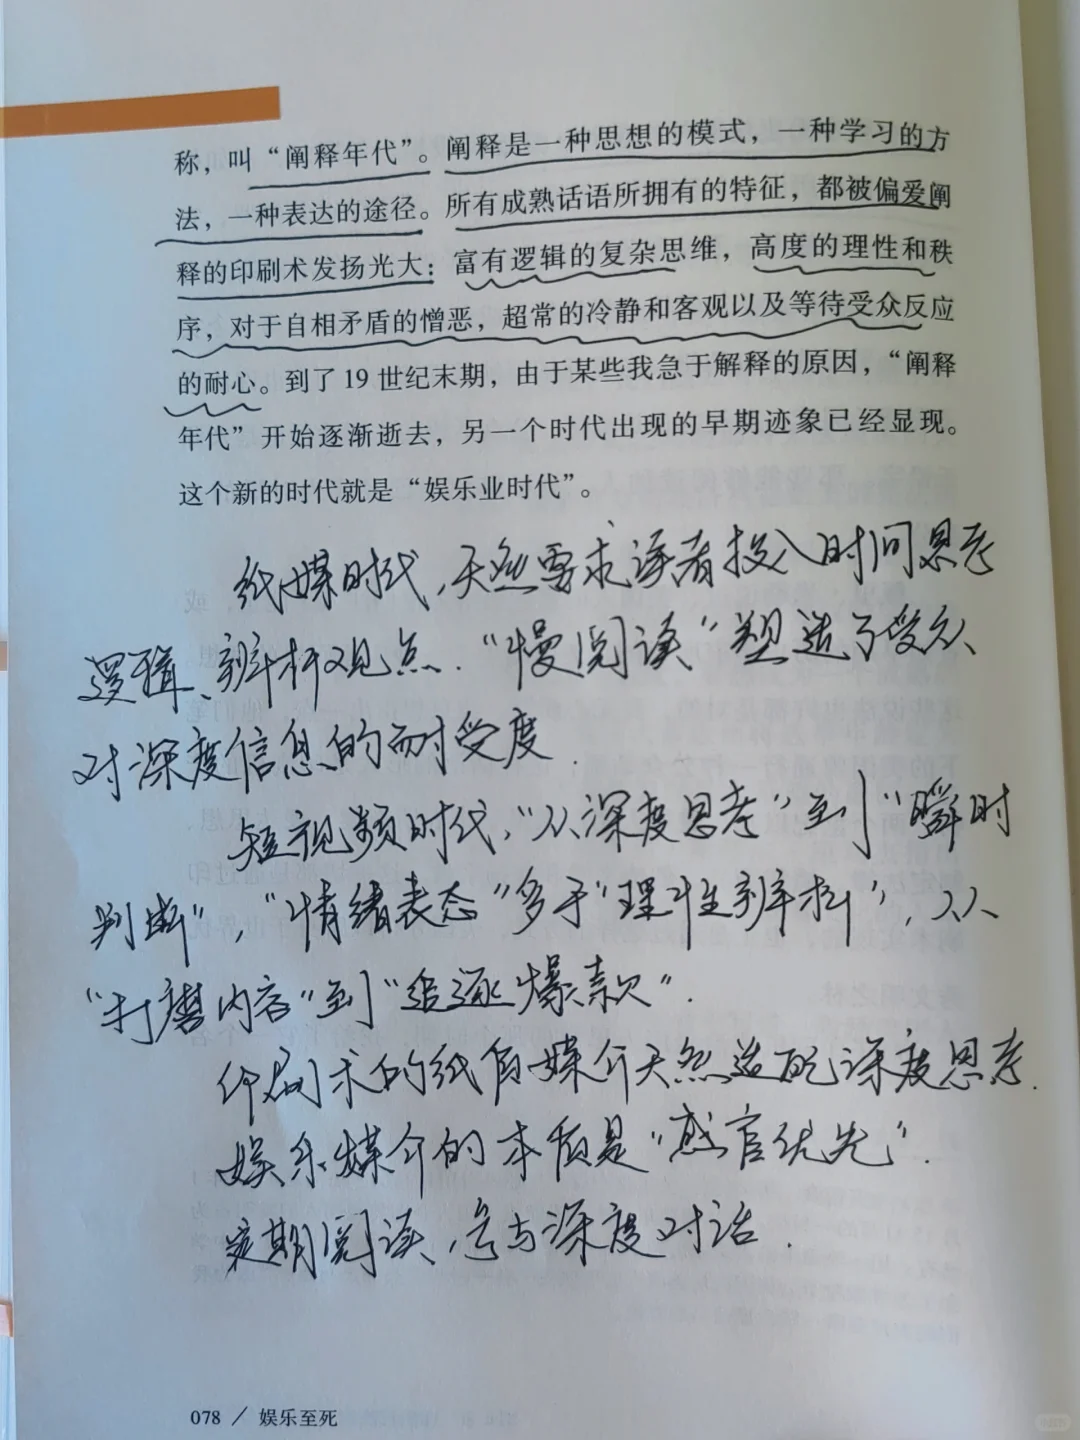 称，叫“阐释年代”。阐释是一种思想的模式，一种学习的方
法，一种表达的途径。所有成熟话语所拥有的特征，都被偏爱阐
释的印刷术发扬光大：富有逻辑的复杂思维，高度的理性和秩
序，对于自相矛盾的憎恶，超常的冷静和客观以及等待受众反应
的耐心。到了19世纪末期，由于某些我急于解释的原因，“阐释
年代”开始逐渐逝去，另一个时代出现的早期迹象已经显现。
这个新的时代就是“娱乐业时代”。
纸媒时代，天然要求读者投入时间思考
逻辑、辨析观点．“慢阅读”塑造了受众
对深度信息的耐受度．
短视频时代，“从深度思考”到“瞬时
判断”，“情绪表态”多于“理性辨析”，从
“打磨内容”到“追逐爆款”．
印刷术的纸质媒介天然适配深度思考．
娱乐媒介的本质是“感官优先”．
定期阅读，参与深度对话．
078 / 娱乐至死